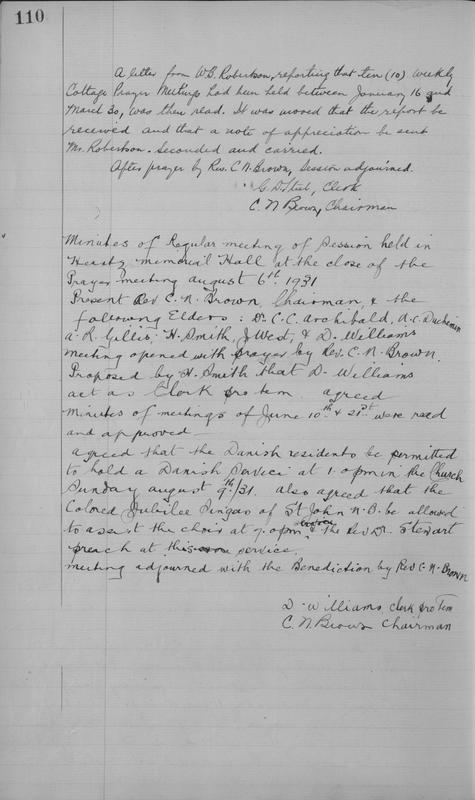 110
A letter from W.B. Robertson, reporting that ten (10) weekly
Cottage Prayer Meetings had been held between January 16 and
March 30, was then read. It was moved that the report be
received and that a note of appreciation be sent
Mr. Robertson. Seconded and carried.
After prayer by Rev. C.N. Brown, Session adjourned.
G. D. Steel, Clerk
C. N. Brown, Chairman
Minutes of Regular meeting of Session held in
memorial Hall at the close of the
Prayer meeting august 6th 1931
Present Rev C. N. Brown, Chairman, & the
following Elders: Dr. C. C. Archibald, A. C. Duchemin
A. R. Gillis, H. Smith, J West, & D. Williams
meeting opened with prayer by Rev. C. N. Brown.
Proposed by H. Smith that D. Williams
act as Clerk pro tem agreed
Minutes of meetings of June 10th & 21st were read
and approved
agreed that the Danish residents be permitted
to hold a Danish Service at 1.0pm in the Church
Sunday august 9th/31. also agreed that the
Colored Jubilee Singers of St John N.B. be allowed
to assist the choir at 7.0pm & The Rev Dr. Stewart
preach at this service.
meeting adjourned with the Benediction by Rev C. N. Brown
D. Williams Clerk pro Tem
C. N. Brown Chairman